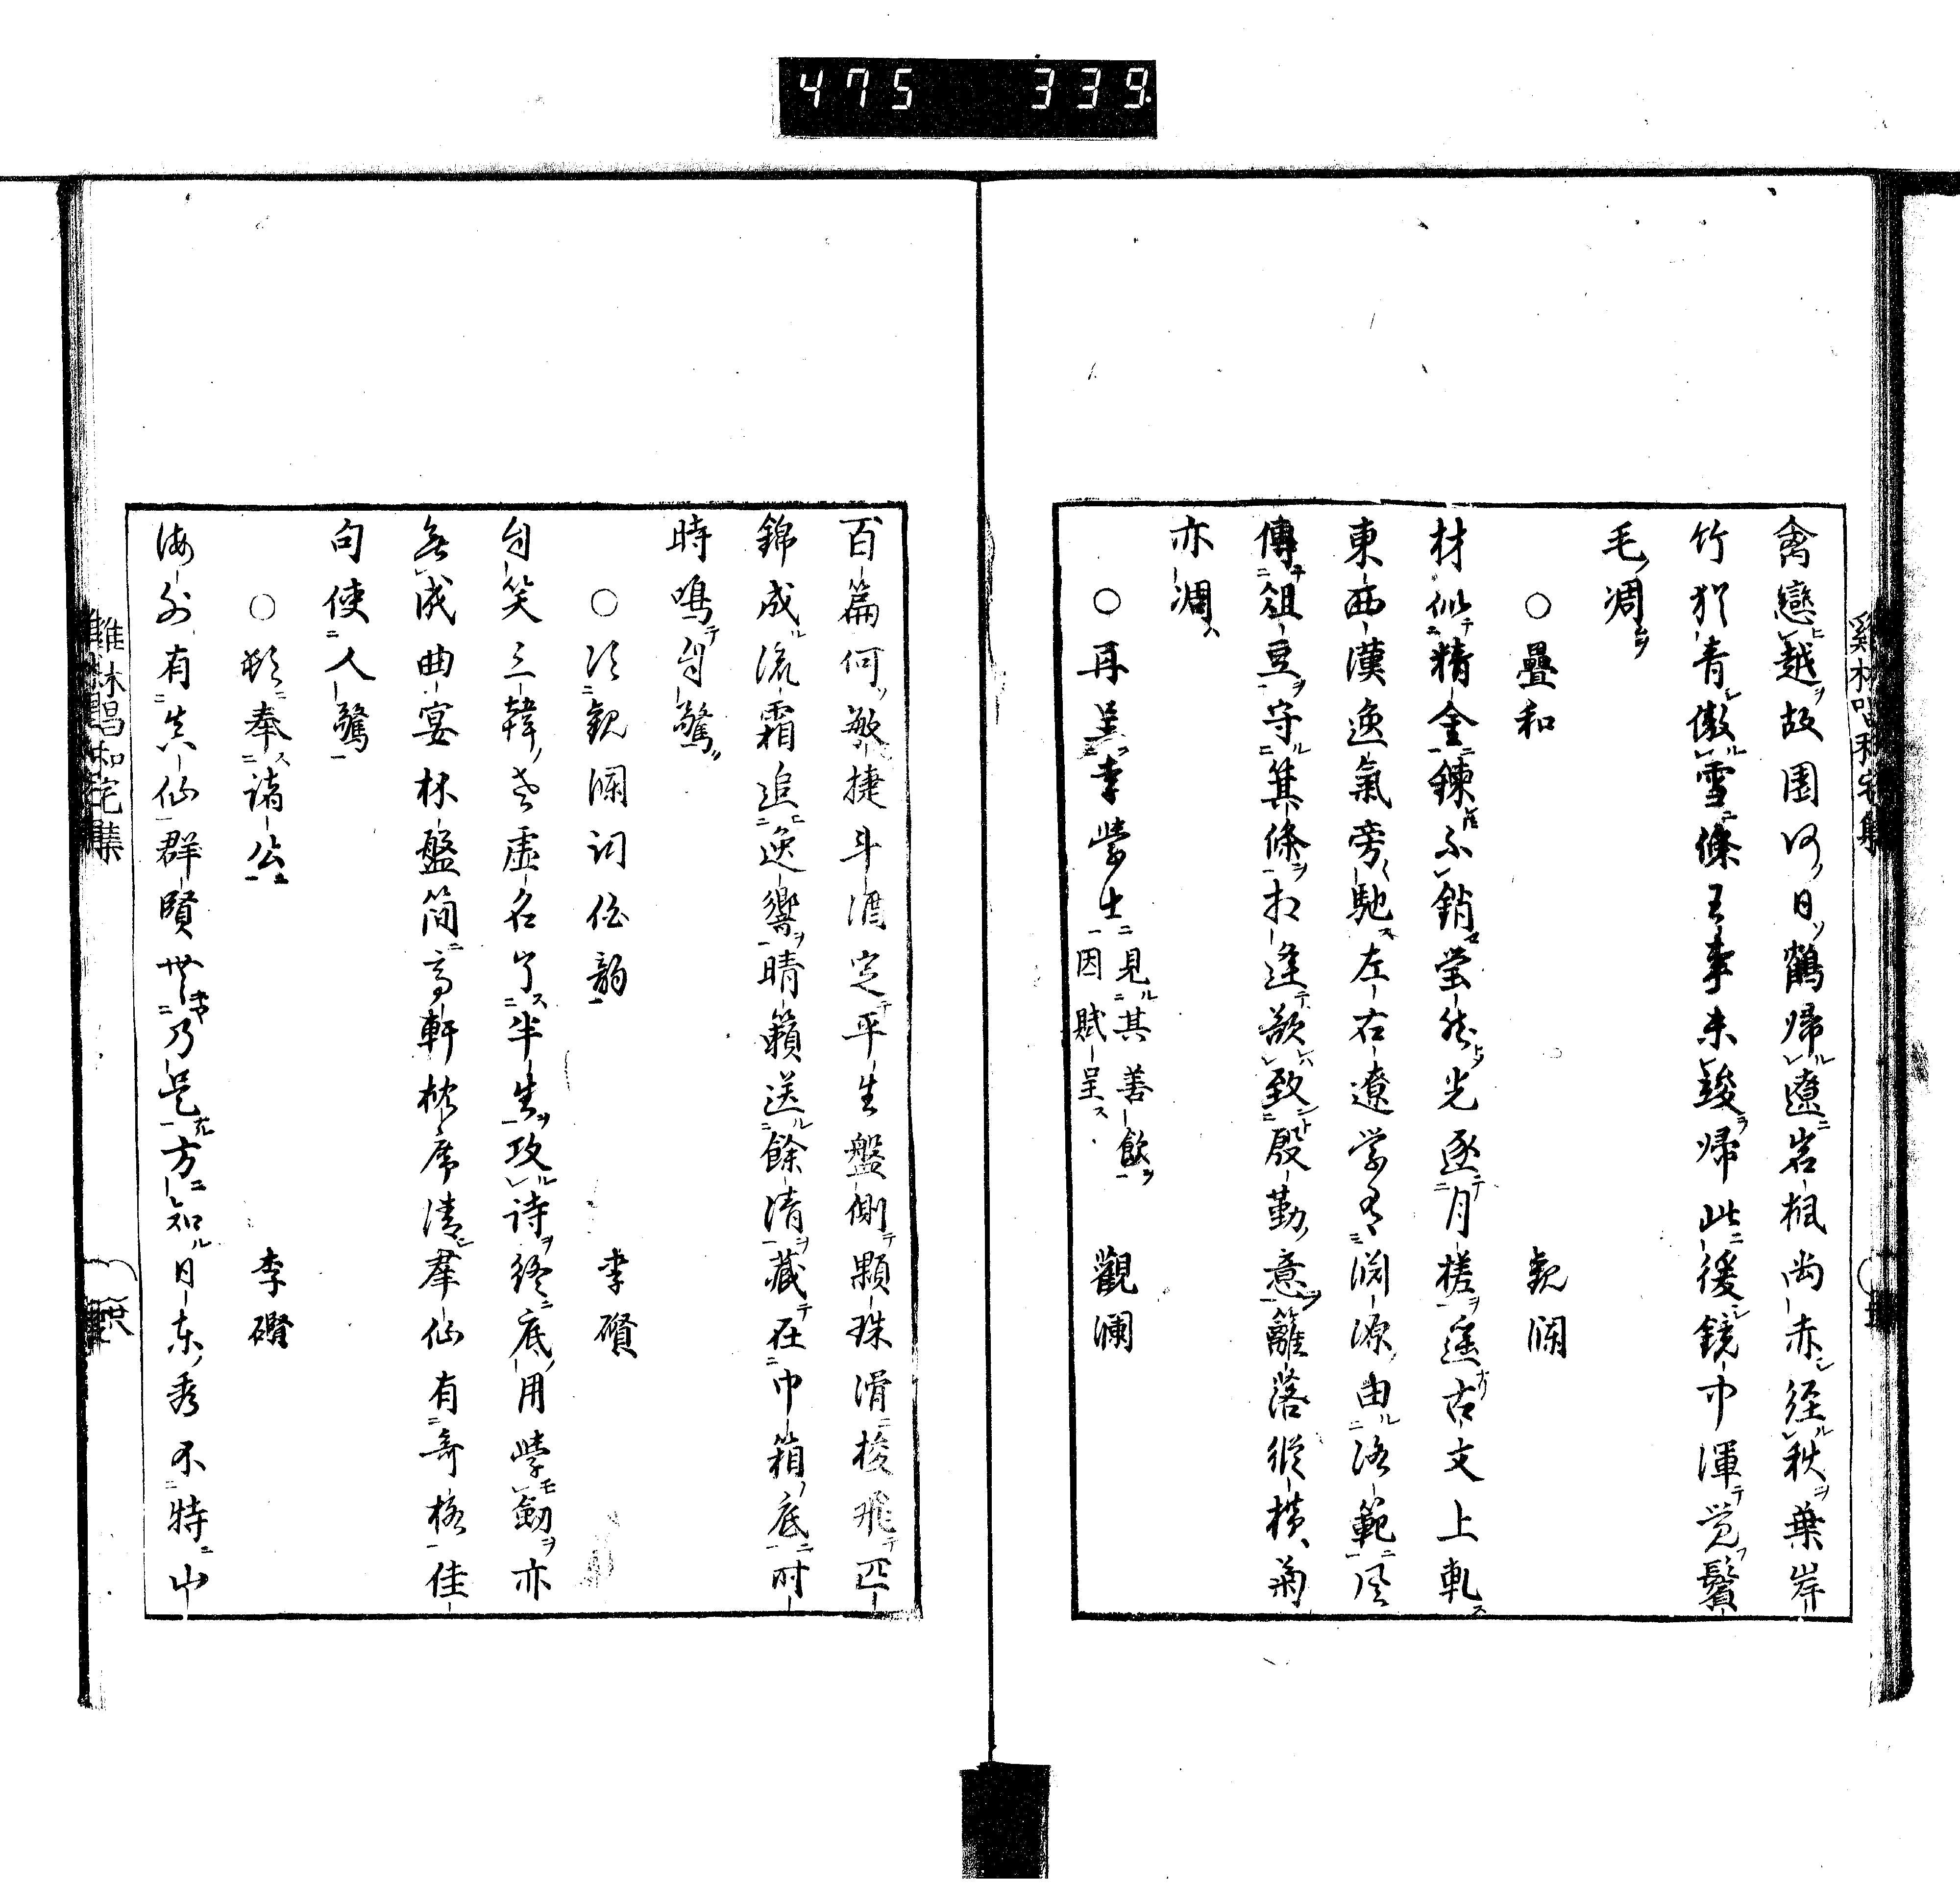 475 339
禽戀越故園何日鶴帰遼岩楓尚赤経秋葉岸
竹猶青傲雪條王事未竣帰此後鏡中渾覚鬢
毛凋
○疊和 観瀾
材似精金鍊不銷瑩然光逐月槎遥古文上軋
東西漢逸氣旁馳左右遼学有淵源由洛範風
傳俎豆守箕條相逢欲致殷勤意籬落縦横菊
亦凋
○再呈李學士 見其善飲因賦呈 觀瀾
百篇何敏捷斗酒定平生盤側顆珠滑梭飛疋
錦成流霜追逸響晴籟送餘清藏在巾箱底時
時鳴自驚
○次観瀾詞伯韵 李礥
自笑三韓老虚名了半生攻詩終底用學劒亦
無成曲宴杯盤簡高軒枕席清羣仙有奇格佳
句使人驚
○頓奉諸公 李礥
海外有真仙群賢無乃是方知日東秀不特山
雞林唱和定集